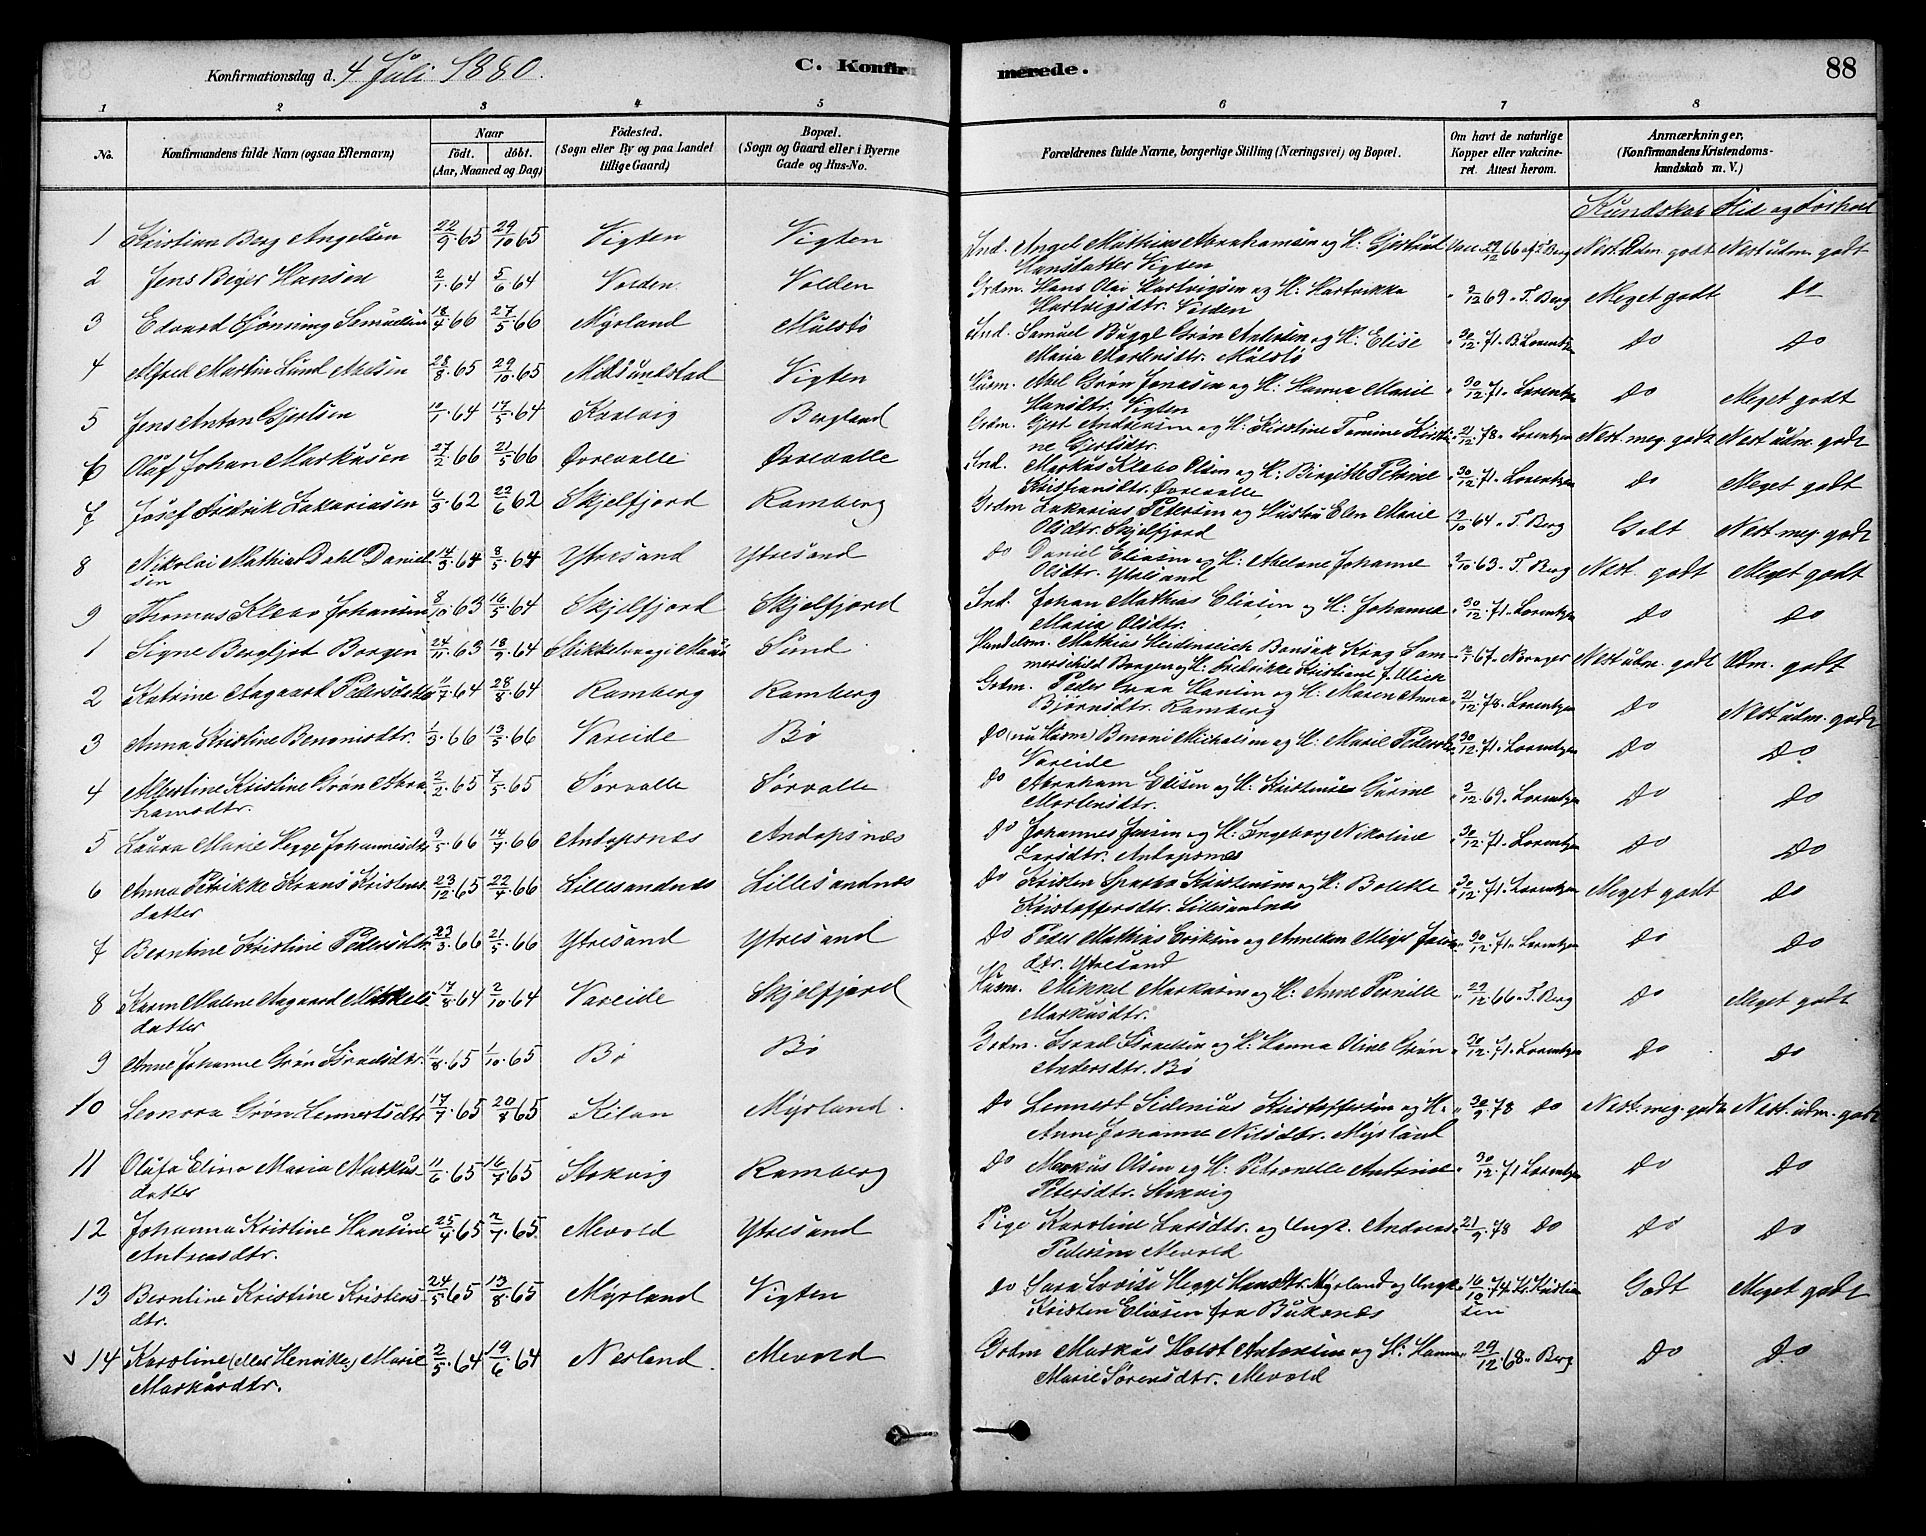 Konfirmationsdag d. 4 Juli 1880.
C. Konfirmerede.
88
1 2 3 4 5 6 7 8
No.
Konfirmandens fulde Navn (ogsaa Efternavn)
Naar
Født. døbt.
(Aar, Maaned og Dag)
Fødested.
(Sogn eller By og paa Landet
tillige Gaard)
Bopæl.
(Sogn og Gaard eller i Byerne
Gade og Hus-No.
Forældrenes fulde Navne, borgerlige Stilling (Næringsvei) og Bopæl.
Om havt de naturlige
Kopper eller vakcineret. Attest herom.
Anmærkninger,
(Konfirmandens Kristendomskundskab m. V.)
Kundskab Flid og Forhold
1 Kristian Berg Angelsen 22/9 65 29/10 65 Vigten Vigten Ind. Angel Mathias Abrahamsen og H: Gjertrud Vacc. 29/12 66 af T. Berg Nest. Udm. godt Nest udm. godt
Hansdatter Vigten
2 Jens Beyer Hansen 2/1 64 5/6 64 Volden Volden Grdm. Hans Olai Hartvigsen og H: Hartvikka " 2/12 69 " T. Berg Meget godt Do
Hartvigsdtr. Volden
3 Edvard Lønning Semuelsen 18/4 66 27/5 66 Myrland Mulstø Ind. Samuel Bugge Grøn Andersen og H: Elise " 30/12 71 " B. Lorentzen Do Do
Maria Martinsdtr. Mulstø
4 Alfred Martin Lund Axelsen 28/8 65 29/10 65 Vigten Husm. Axel Grøn Jonassen og H: Hanna Marie " 30/12 71 " Lorentzen Do Meget godt
Hansdtr. Vigten
5 Jens Anton Gjertsen 10/1 64 17/5 64 Kvalvig Bergland Grdm. Gjert Andersen og H: Kirstine Tomine Kristine 21/12 78 " Lorentzen Nest. meg. godt Nest udm. godt
Gjertsdtr.
6 Olaf Johan Markusen 27/2 66 21/5 66 Øvrevalle Øvrevalle Ind. Markus Klebo Olsen og H: Birgitte Petrine " 30/12 71 " Lorentzen Do Meget godt
Kristiansdtr. Øvrevalle
7 Josef Fredrik Zakariasen 6/3 62 22/6 62 Skjelfjord Ramberg Grdm Zakarias Pedersen og Hustru Elen Marie 19/10 64 " T. Berg Godt Nest. meg. godt
Olsdtr. Skjelfjord
8 Nikolai Mathias Dahl Danielsen 14/3 64 8/5 64 Ytresand Ytresand Do Daniel Eliasen og H: Abelone Johanne 2/10 63 " T. Berg Nest. godt Meget godt
Olsdtr. Ytresand
9 Thomas Klebo Johansen 8/10 63 16/5 64 Skjelfjord Skjelfjord Ind. Johan Mathias Eliasen og H: Johanna " 30/12 71 " Lorentzen Do Do
Maria Olsdtr.
1 Signe Bergljot Borgen 24/11 63 18/9 64 Sund Handelsm. Mathias Heidenreich Krog Sommerschild Borgen og H: Fredrikke Kristiane J. Ulick 67 " Nest udm. godt Udm. godt
2 Katrine Aagaard Pedersdatter 11/7 64 28/8 64 Ramberg Ramberg Grdm. Peder Graa Hansen og H: Maren Anna 21/12 78 " Lorentzen Do Nest udm. godt
Bjørnsdtr. Ramberg
3 Anna Kristine Benonisdtr. 1/3 66 13/5 66 Vareide Bø Do (nu Husm) Benoni Michelsen og H: Marie Pedersdtr 30/12 71 " Lorentzen Do Do
Vareide
4 Albertine Kristine Grøn Abrahamsdtr. 2/2 65 7/5 65 Sørvalle Sørvalle Do Abraham Edisen og H: Gurine " 2/12 69 " Lorentzen Do Do
Mortensdtr.
5 Laura Marie Hegge Johannesdtr. 9/5 66 14/7 66 Andopsnæs Andopsnæs Do Johannes Jensen og H: Ingeborg Nikoline " 30/12 71 " Lorentzen Do Do
Larsdtr. Andopsnes
6 Anna Petrikke Krans Kristensdatter 23/12 65 22/4 66 Lillesandnæs Lillesandnæs Do Kristen Sparbo Kristensen og H: Bolette " 30/12 71 " Lorentzen Meget godt Do
Kristoffersdtr. Lillesandnæs
7 Berntine Kristine Pedersdtr. 23/3 66 21/5 66 Ytresand Ytresand Do Peder Mathias Eriksen og Anneken " 30/12 71 " Lorentzen Do Do
dtr. Ytresand
8 Karen Malene Aagaard Mikkelsdatter 17/8 64 2/10 64 Vareide Skjelfjord Husm. Mikkel Markusen og H: Anne Pernille " 29/12 66 " T. Berg Do Meget godt
Markusdtr.
9 Anne Johanne Grøn Israelsdtr. 11/8 65 1/10 65 Bø Bø Grdm. Israel Israelsen og H: Hanna Oline Grøn " 30/12 71 " Lorentzen Do Do
Andersdtr. Bø
10 Leonora Grøn Lennertsdtr 17/7 65 20/8 65 Kilan Myrland. Do Lennert Sidenius Kristoffersen og H. " 30/9 78 Do Nest. meg. godt Nest. udm. godt
Anne Johanne Nilsdtr. Myrland
11 Olufa Elina Maria Markusdatter 11/6 65 16/7 65 Stokvig Ramberg Do Markus Olsen og H: Petronelle Antonie " 30/12 71 Lorentzen Do Do
Petersdtr. Stokvig
12 Johanna Kristine Hansine 25/4 65 2/7 65. Mevold Ytresand Pige Karoline Larsdtr. og Ungk. Andreas " 21/9 78 Do Do Do
Andreasdtr. Pedersen Mevold
13 Berntine Kristine Kristensdtr. 24/5 65 13/8 65 Myrland Vigten Do Sara Lovise Hegge Hansdtr. Myrland og Ungk. " 16/10 74 H. Kristiansen Godt Meget godt
Kristen Eliasen fra Buksnæs
14 Karoline (eller Henrikke) Marie 2/5 64 19/6 64 Nesland. Mevold Grdm Markus Holst Antonsen og H: Hanna " 29/12 68 " Berg Do Do
Markusdtr. Marie Sørensdtr. Mevold